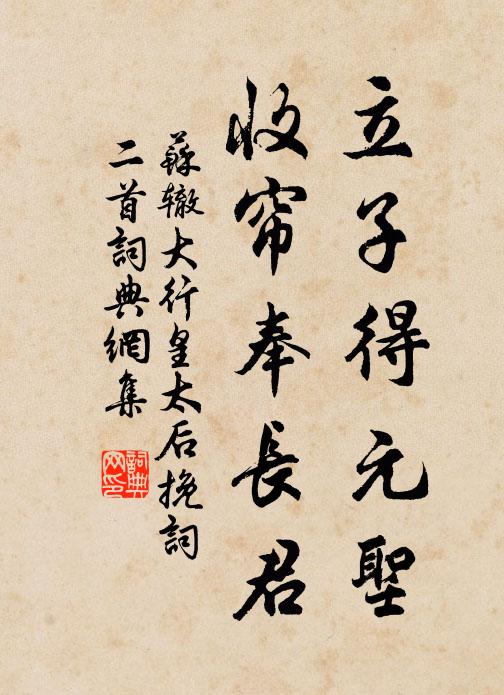 立子得元聖
收帘奉長君
蘇辙大行皇太后挽詞
二首詞典網集
詞典
网印